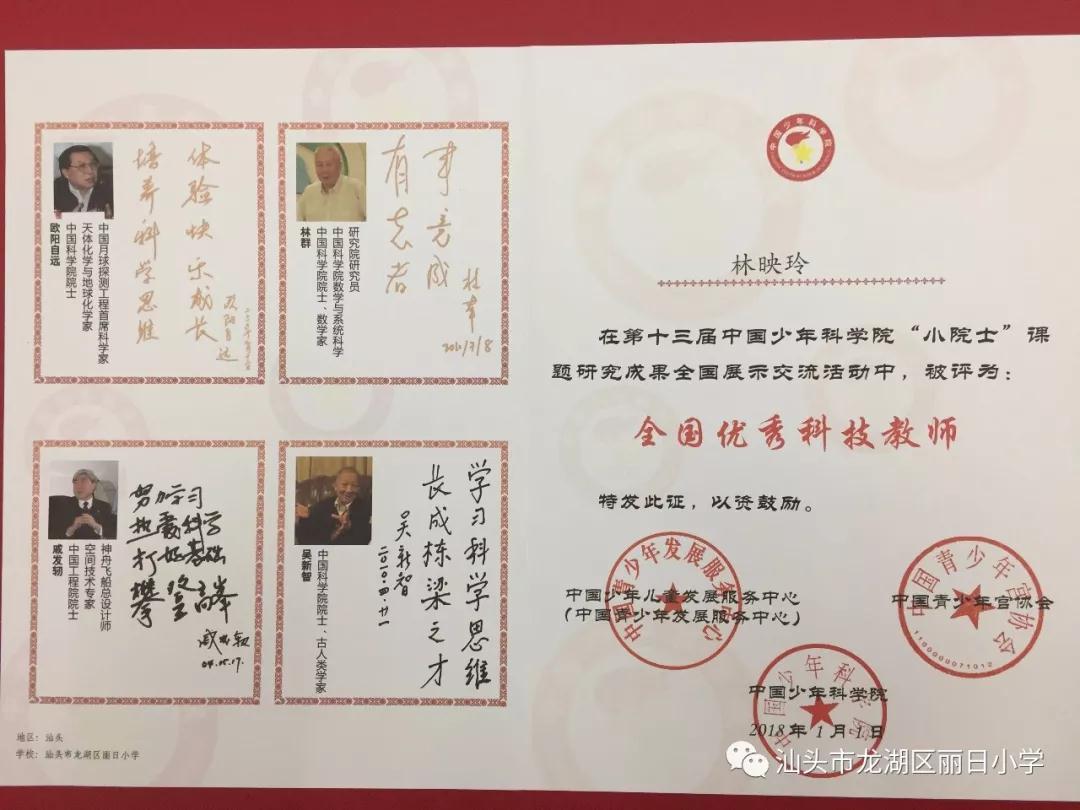 体验快乐成长
培养科学思维
欧阳自远
中国月球探测工程首席科学家
天体化学与地球化学家
中国科学院院士
欧阳自远
有志者
事竟成
林群
研究院研究员
中国科学院数学与系统科学
中国科学院院士、数学家
林群
努力学习
热爱科学
打好基础
攀登高峰
戚发轫
神舟飞船总设计师
空间技术专家
中国工程院院士
戚发轫
学习科学思维
长成栋梁之才
吴新智
二〇一〇.四.廿一
中国科学院院士、古人类学家
吴新智
地区：汕头
学校：汕头市龙湖区丽日小学
中国少年科学院
林映玲
在第十三届中国少年科学院“小院士”课
题研究成果全国展示交流活动中，被评为：
全国优秀科技教师
特发此证，以资鼓励。
中国青少年发展服务中心
中国少年儿童发展服务中心
（中国青少年发展服务中心）
中国青少年宫协会
中国青少年宫协会
1100000071012
中国少年科学院
中国少年科学院
2018年1月1日
汕头市龙湖区丽日小学